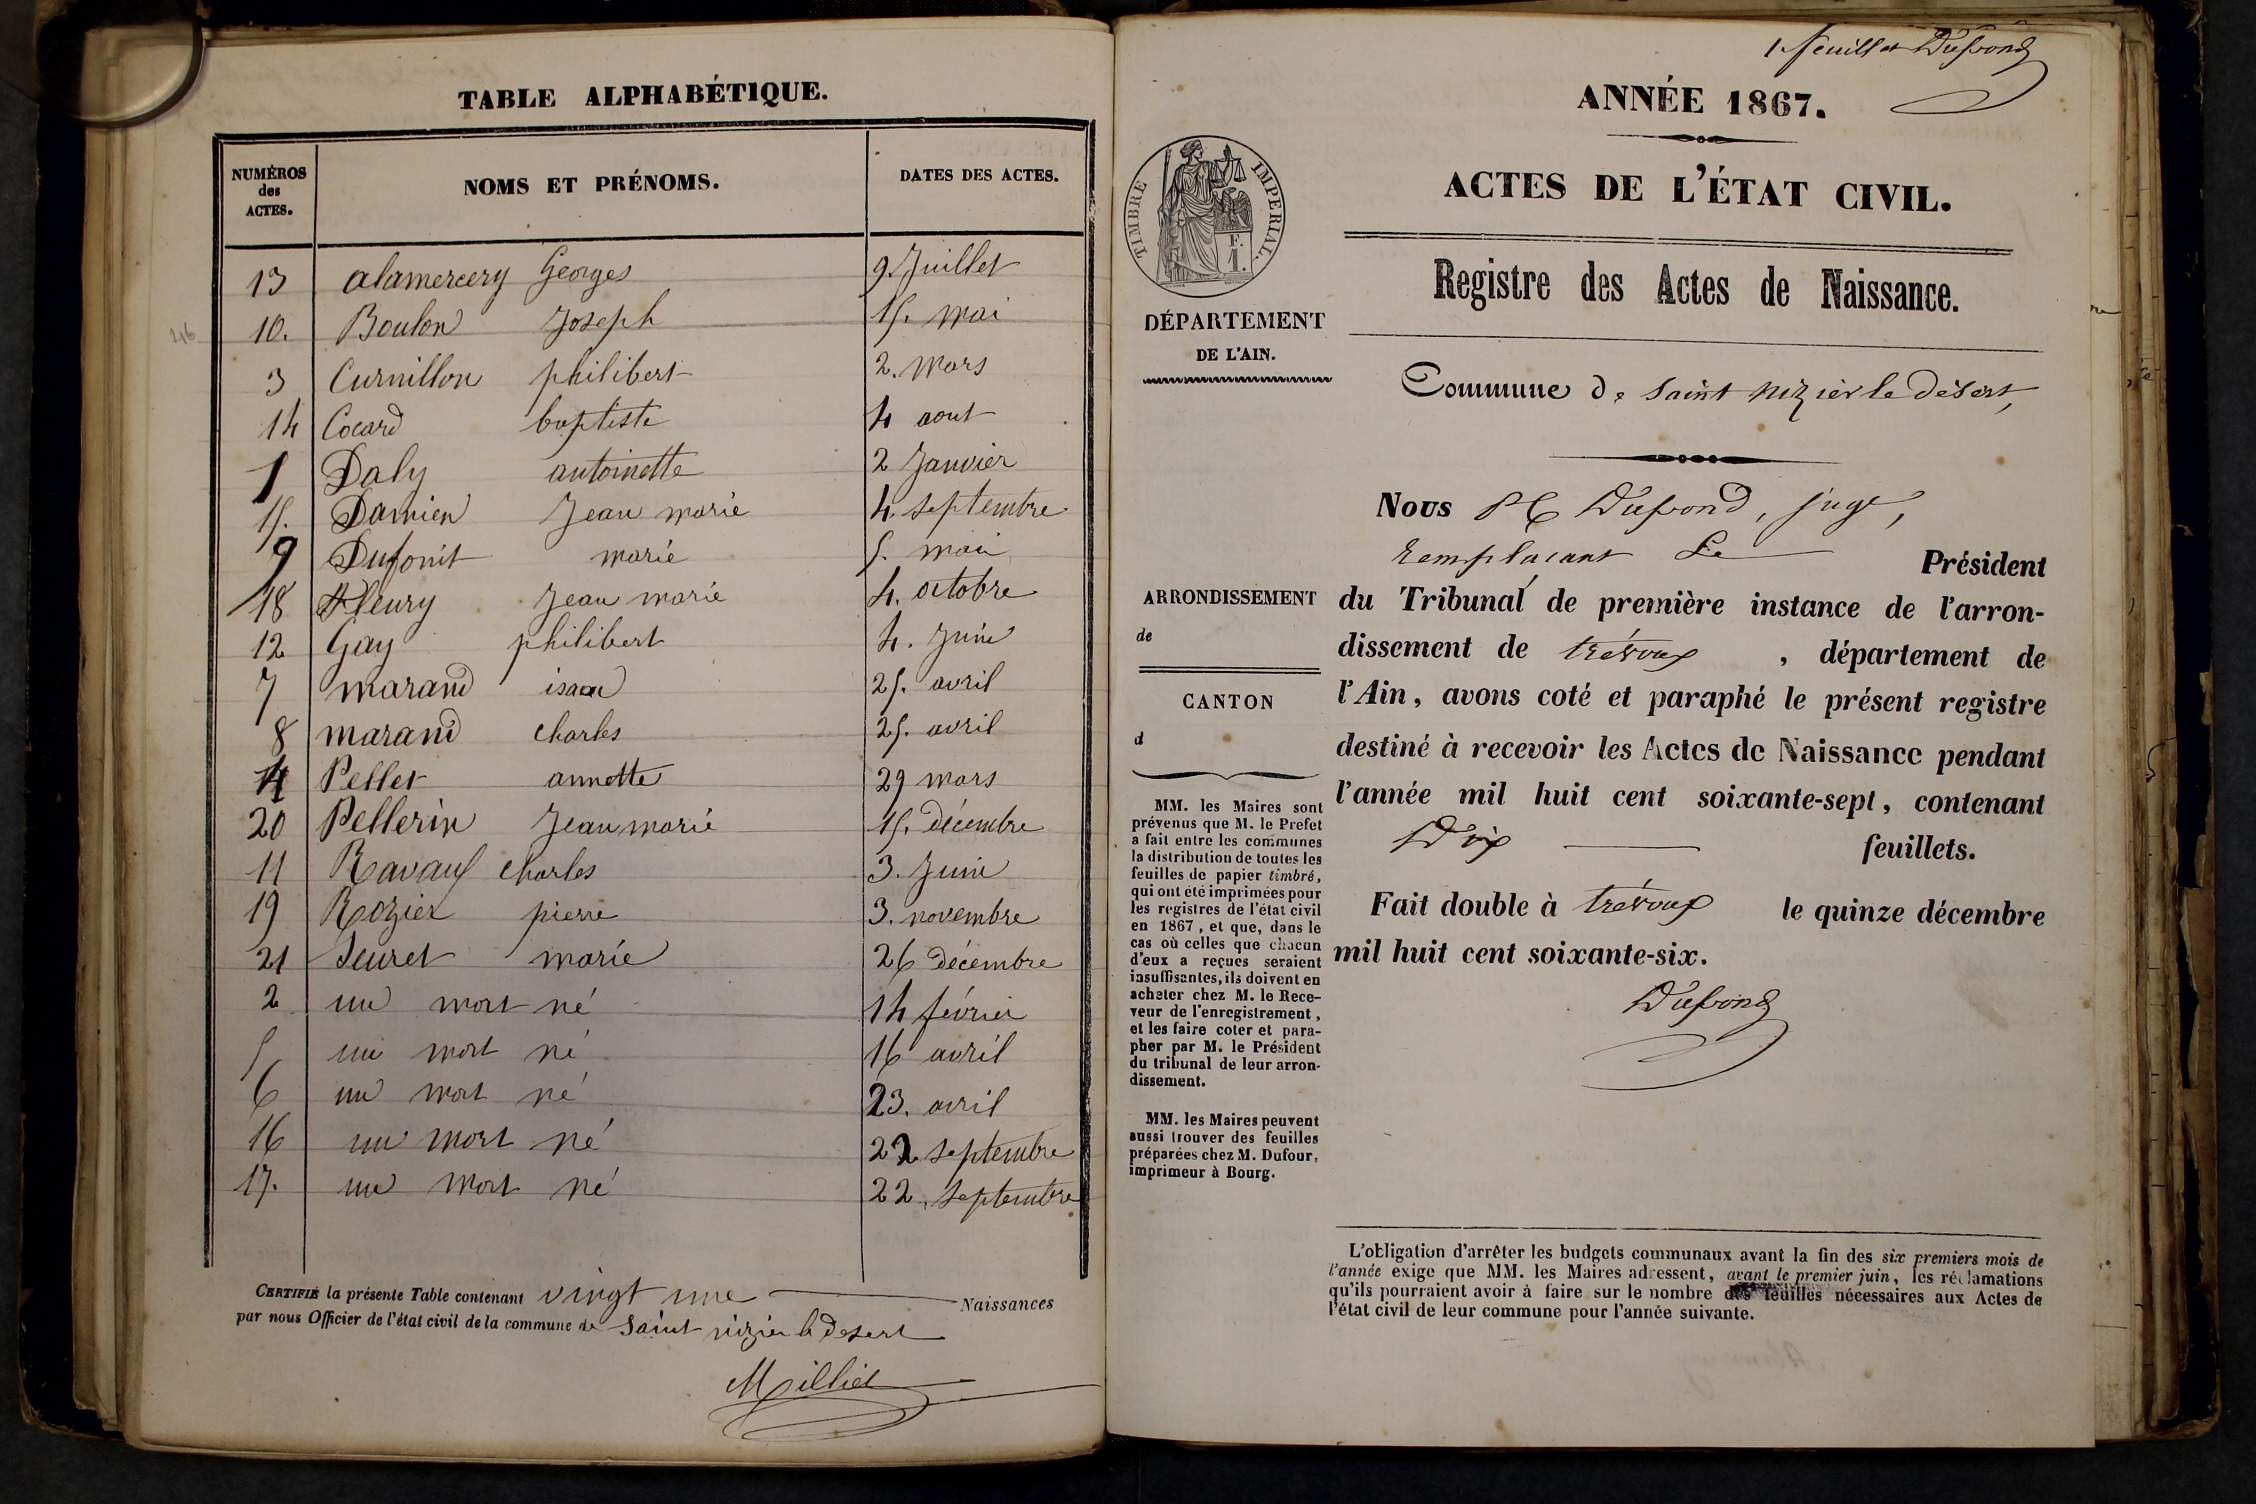 TABLE ALPHABÉTIQUE.
NUMÉROS des ACTES. NOMS ET PRÉNOMS. DATES DES ACTES.
13 alamercery Georges 9. Juillet
10. Boulon Joseph 15. mai
3 Curnillon philibert 2. mars
14 Cocard baptiste 4 aout
1 Daly antoinette 2 Janvier
15. Damien Jean marie 4. septembre
9 Dufonit marie 5. mai
18 Fleury Jean marie 4. octobre
12 Gay philibert 4. Juin
7 marand isaac 25. avril
8 marand charles 25. avril
4 Pellet annette 29 mars
20 Pellerin Jean marie 15. décembre
11 Ravaux charles 3. Juin
19 Rozier pierre 3. novembre
21 Seuret marie 26 décembre
2 un mort né 14 février
5 un mort né 16 avril
6 un mort né 23. avril
16 un mort né 22 septembre
17. un mort né 22. septembre
CERTIFIÉ la présente Table contenant vingt une Naissances
par nous Officier de l'état civil de la commune de Saint nizier le desert
Milliet
1 feuillet Dufond
ANNÉE 1867.
ACTES DE L'ÉTAT CIVIL.
Registre des Actes de Naissance.
TIMBRE IMPERIAL.
F.
1.
DÉPARTEMENT
DE L'AIN.
Commune de Saint nizier le désert,
Nous Dufond, juge,
remplacant Le Président
du Tribunal de première instance de l'arron-
dissement de trévoux, département de
l'Ain, avons coté et paraphé le présent registre
destiné à recevoir les Actes de Naissance pendant
l'année mil huit cent soixante-sept, contenant
Dix feuillets.
Fait double à trévoux le quinze décembre
mil huit cent soixante-six.
Dufond
ARRONDISSEMENT
de
CANTON
d
MM. les Maires sont
prévenus que M. le Préfet
a fait entre les communes
la distribution de toutes les
feuilles de papier timbré,
qui ont été imprimées pour
les registres de l'état civil
en 1867, et que, dans le
cas où celles que chacun
d'eux a reçues seraient
insuffisantes, ils doivent en
acheter chez M. le Rece-
veur de l'enregistrement,
et les faire coter et para-
pher par M. le Président
du tribunal de leur arron-
dissement.
MM. les Maires peuvent
aussi trouver des feuilles
préparées chez M. Dufour,
imprimeur à Bourg.
L'obligation d'arrêter les budgets communaux avant la fin des six premiers mois de
l'année exige que MM. les Maires adressent, avant le premier juin, les réclamations
qu'ils pourraient avoir à faire sur le nombre des feuilles nécessaires aux Actes de
l'état civil de leur commune pour l'année suivante.